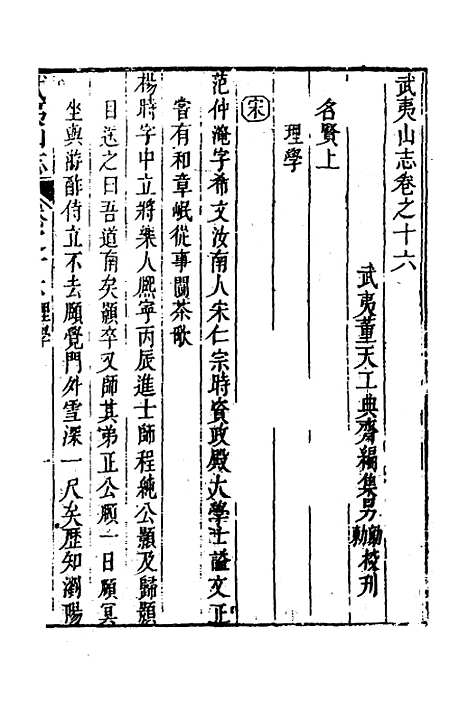 武夷山志卷之十六
武夷董天工典齋編集男勳校刋
名賢上
理學
宋
范仲淹字希文汝南人宋仁宗時資政殿大學士謚文正
嘗有和章岷從事鬭茶歌
楊時字中立將樂人熈寧丙辰進士師程純公顥及歸顥
目送之曰吾道南矣顥卒又師其弟正公頤一日頤冥
坐與游酢侍立不去頤覺門外雪深一尺矣歷知瀏陽
理學